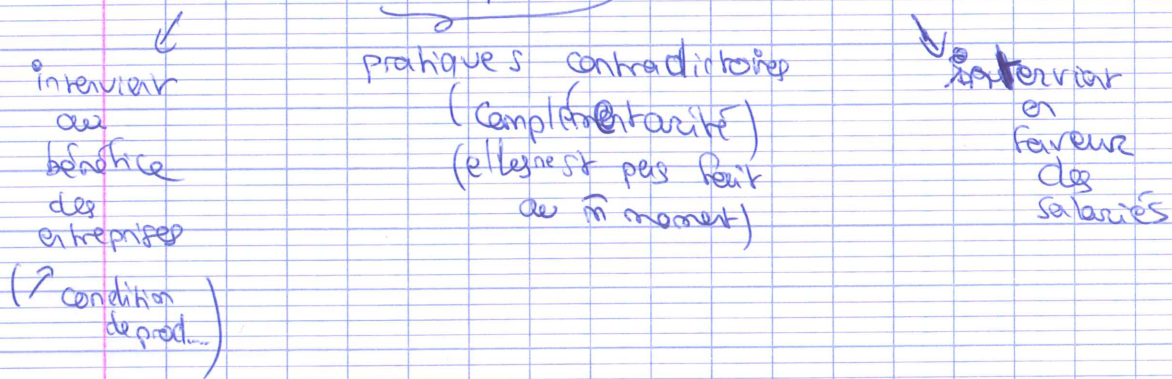 intervient
au
bénéfice
des
entreprises
(↗ condition
de prod....)
pratiques contradictoires
(complémentarité)
(elle n'est pas fait
au m̄ moment)
intervient
en
faveur
des
salariés